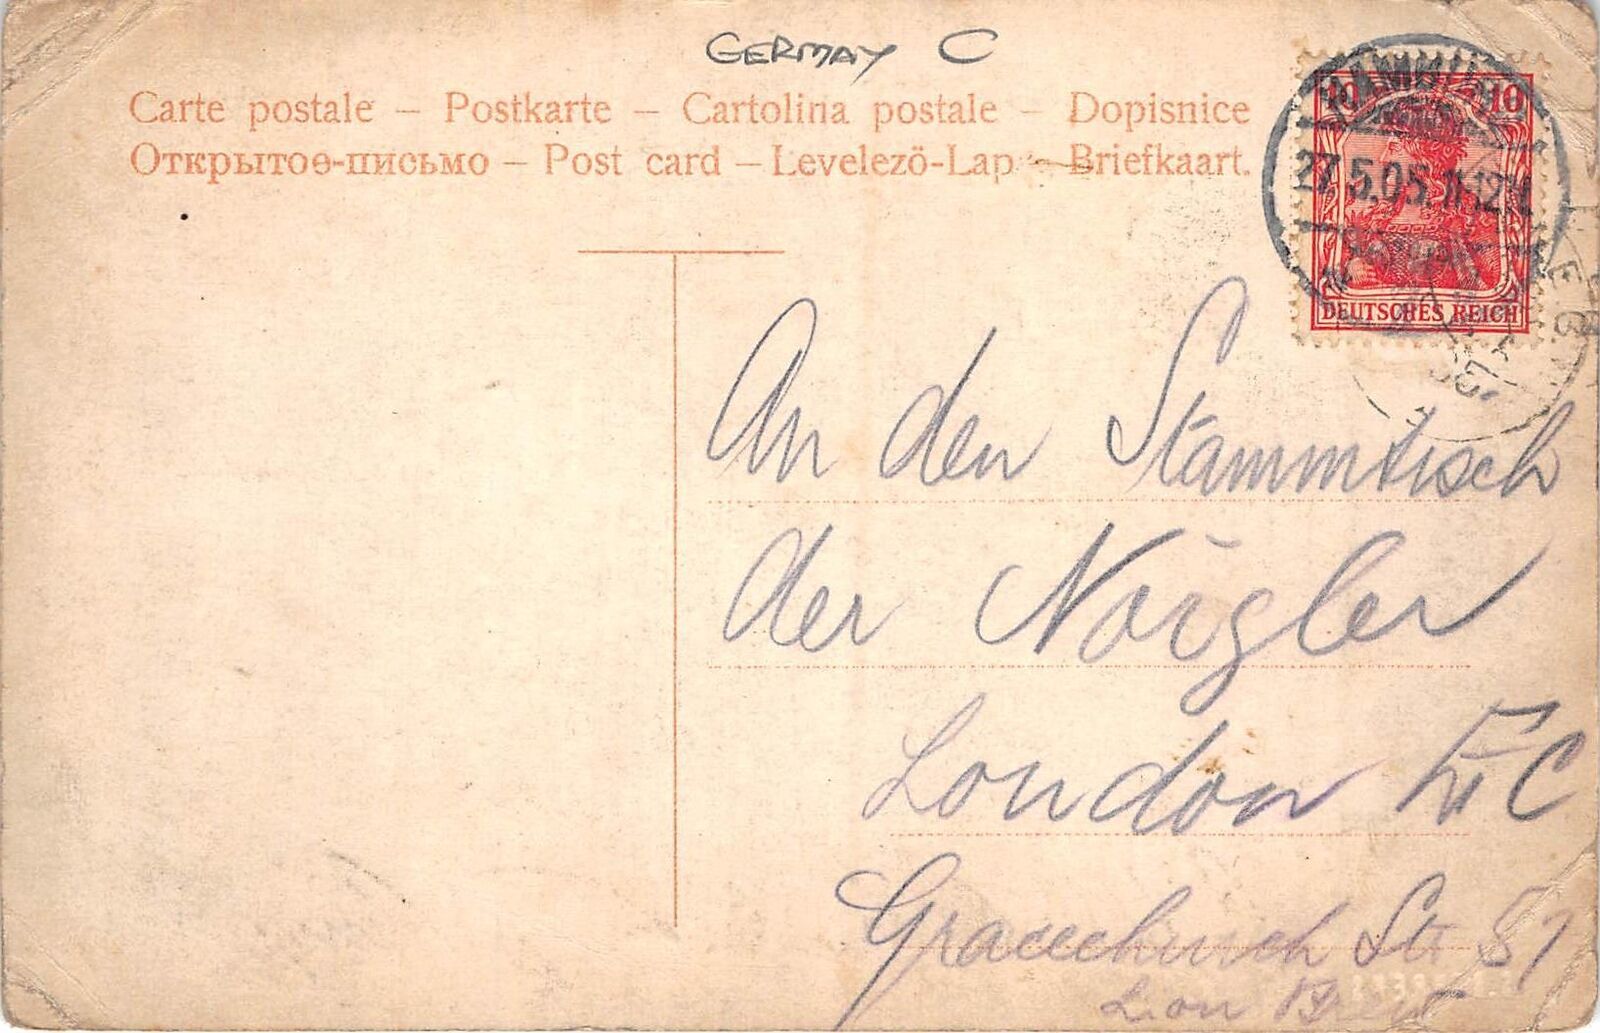 GERMAY C
Carte postale – Postkarte – Cartolina postale – Dopisnice
Открытое-письмо – Post card – Levelezö-Lap – Briefkaart.
10 10
27.5.05.11-12V.
DEUTSCHES REICH
An den Stammtisch
der Nörgler
London EC
Gracechurch Str 57
Lion